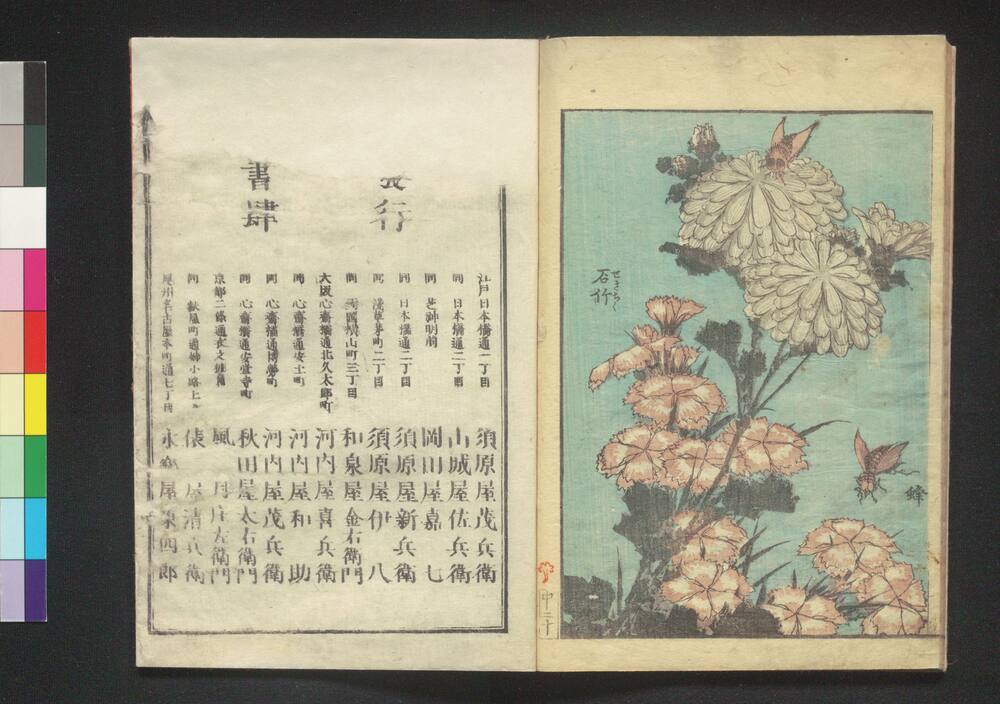 せきちく
石竹
蜂
中三十
發行
書肆
江戸日本橋通一丁目 須原屋茂兵衛
同 日本橋通二丁目 山城屋佐兵衛
同 芝神明前 岡田屋嘉七
同 日本橋通二丁目 須原屋新兵衛
同 淺草茅町二丁目 須原屋伊八
同 両國横山町三丁目 和泉屋金右衛門
大坂心齋橋通北久太郎町 河内屋喜兵衛
同 心齋橋通安土町 河内屋和助
同 心齋橋通博労町 河内屋茂兵衛
同 心齋橋通安堂寺町 秋田屋太右衛門
京都二條通衣之棚 風月庄左衛門
同 姉小路上ル 俵屋清兵衛
尾州名古屋本町通七丁目 永樂屋東四郎